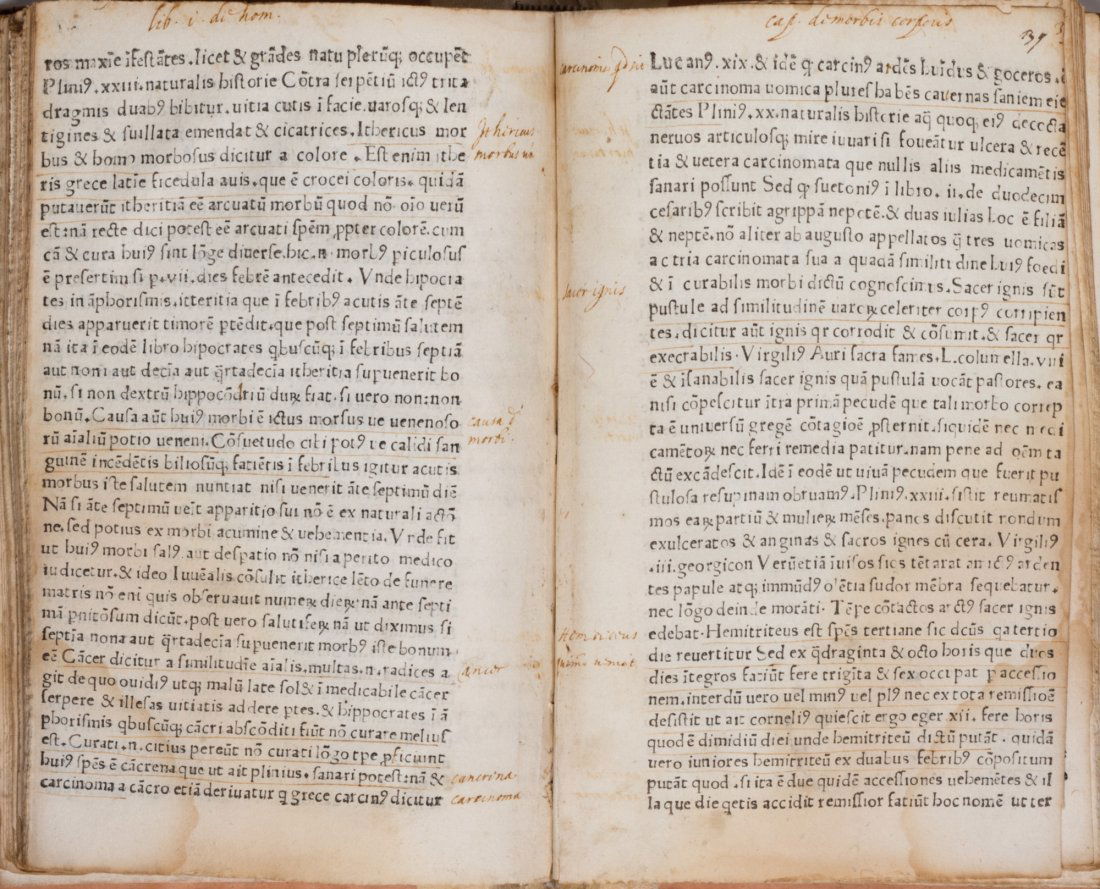 lib. i. de hom.
ros maxīe īfestātes. licet & grādes natu plerūq; occupēt
Pliniꝰ. xxiii. naturalis historie Cōtra serpētiū ictꝰ trita
dragmis duabꝰ bibitur. uitia cutis ī facie. uarosq; & len
tigines & suillata emendat & cicatrices. Ithericus mor
bus & homo morbosus dicitur a colore. Est enim ithe
ris grece latīe ficedula auis. que ē crocei coloris. quidā
putauerūt itheritiā eē arcuatū morbū quod nō. oīo uerū
est: nā recte dici potest eē arcuati spēm ꝓpter colorē. cum
cā & cura huiꝰ sint lōge diuerse. hic. n. morbꝰ piculosus
ē presertim si p. vii. dies febrē antecedit. Vnde hipocra
tes in āphorismis. itteritia que ī febribꝰ acutis āte septē
dies apparuerit timorē ptēdit. que post septimū salutem
nā ita ī eodē libro hipocrates qbuscūq; ī febribus septīā
aut nona aut decīa aut qrtadecīa itheritia supuenerit bo
nū. si non dextrū hippocōdriū duꝝ fiat. si uero non: non
bonū. Causa aūt huiꝰ morbi ē ictus morsus ue uenenoso
rū aīaliū potio ueneni. Cōsuetudo cibi potꝰ ue calidi san
guinē incēdētis biliosūq; faciētis ī febribus igitur acutis
morbus iste salutem nuntiat nisi uenerit āte septimū diē
Nā si āte septimū ueīt apparitio sui nō ē ex naturali actō
ne. sed potius ex morbi acumine & uehementia. Vnde fit
ut huiꝰ morbi salꝰ aut despatio nō nisi a perito medico
iudicetur. & ideo Iuuēalis cōsulit itherice lēto de funere
matris nō eni quis obseruauit numeꝝ dieꝝ nā ante septi
mā pnitōsum dicūt. post uero salutiferꝝ nā ut diximus si
septīa nona aut qrtadecīa supuenerit morbꝰ iste bonum
eē Cācer dicitur a similitudīe aīalis. multas. n. radices a
git de quo ouidiꝰ utq; malū late solet ī medicabile cācer
serpere & illesas uitiatis addere ptes. & hippocrates ī ā
phorismis qbuscūq; cācri abscōditi fiūt nō curare melius
est. Curati. n. citius pereūt nō curati lōgo tpe ꝓficiunt
huiꝰ spēs ē cācrena que ut ait plinius. sanari potest: nā &
carcinoma a cācro etiā deriuatur q grece carcinꝰ dicitur
Ithericus
morbus
causa
morbi
Cancer
cancrina
carcinoma
cap. de morbis corporis
39
Lucanꝰ. xix. & idē qꝫ carcinꝰ ardēs huīdus & goceros.
aūt carcinoma uomica plures habēs cauernas saniem eie
ctātes Pliniꝰ. xx. naturalis historie aq quoq; eiꝰ decocta
neruos articulosq; mire iuuari si foueātur ulcera & recē
tia & uetera carcinomata que nullis aliis medicamētis
sanari possunt Sed qꝫ suetoniꝰ ī libro. ii. de duodecim
cesaribꝰ scribit agrippā nepotē. & duas iulias hoc ē filiā
& neptē. nō aliter ab augusto appellatos q̄ tres uomicas
ac tria carcinomata sua a quadā similitudine huiꝰ foedi
& ī curabilis morbi dictū cognoscimus. Sacer ignis sūt
pustule ad similitudinē uarꝝ celeriter corpꝰ corripien
tes. dicitur aūt ignis qr corrodit & cōsumit. & sacer qr
execrabilis. Virgiliꝰ Auri sacra fames. L. colum ella. viii
ē & īsanabilis sacer ignis quā pustulā uocāt pastores. ea
nisi cōpescitur ītra primā pecudē que tali morbo correp
ta ē uniuersū gregē cōtagioē ꝓsternit. siquidē nec medi
camētoꝝ nec ferri remedia patitur. nam pene ad oēm ta
ctū excādescit. Idē ī eodē ut uiuā pecudem que fuerit pu
stulosa resupinam obruamꝰ. Pliniꝰ. xxiii. sistit reumatis
mos eaꝝ partiū & mulieꝝ mēses. panos discutit nondum
exulceratos & anginas & sacros ignes cū cera. Virgiliꝰ
.iii. georgicon Verūetiā īuisos sics tētarat amictꝰ arden
tes papule atq; immūdꝰ olētia sudor mēbra sequebatur.
nec lōgo deinde morāti. Tēpe cōtactos artꝰ sacer ignis
edebat. Hemitriteus est spēs tertiane sic dcūs qa tertio
die reuertitur Sed ex qdraginta & octo horis que duos
dies ītegros faciūt fere trigīta & sex occupat p accessio
nem. interdū uero uel minꝰ uel plꝰ nec ex tota remissioē
desistit ut ait corneliꝰ quiescit ergo eger. xii. fere horis
quod ē dimidiū diei unde hemitriteū dictū putāt. quidā
uero iuniores hemitriteū ex duabus febribꝰ cōpositum
putāt quod. si ita ē due quidē accessiones uehemētes & il
la que die qetis accidit remissior faciūt hoc nomē ut ter
carcinoma
sacer ignis
hemitriteus